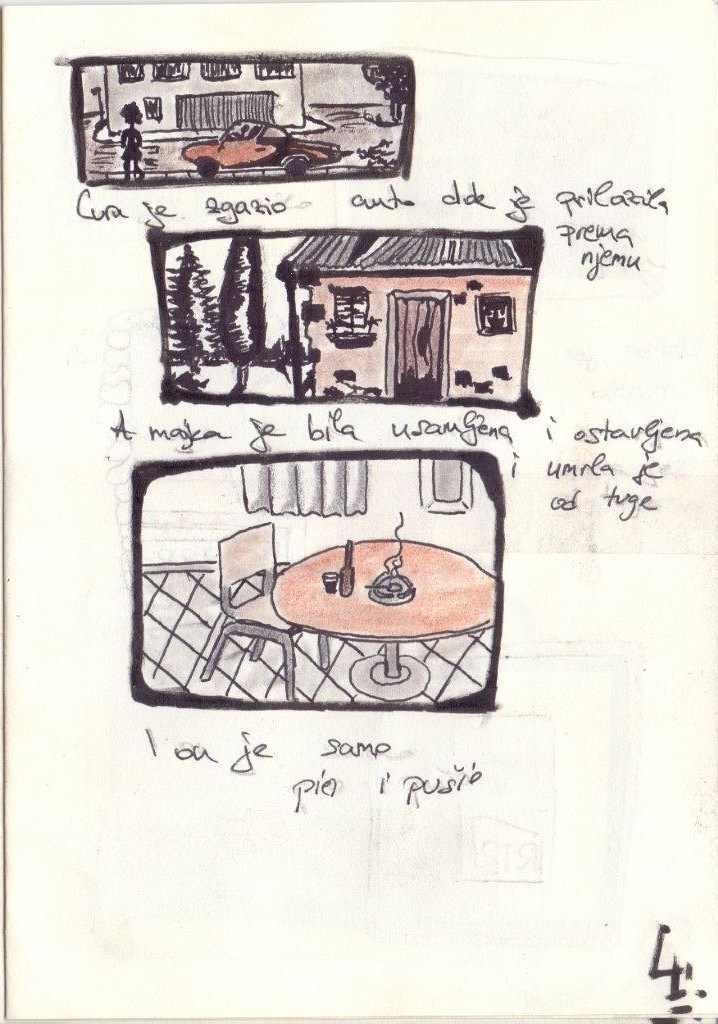 Curu je zgazio auto dok je prilazila
prema
njemu
A majka je bila usamljena i ostavljena
i umrla je
od tuge
I on je samo
pio i pušio
4.